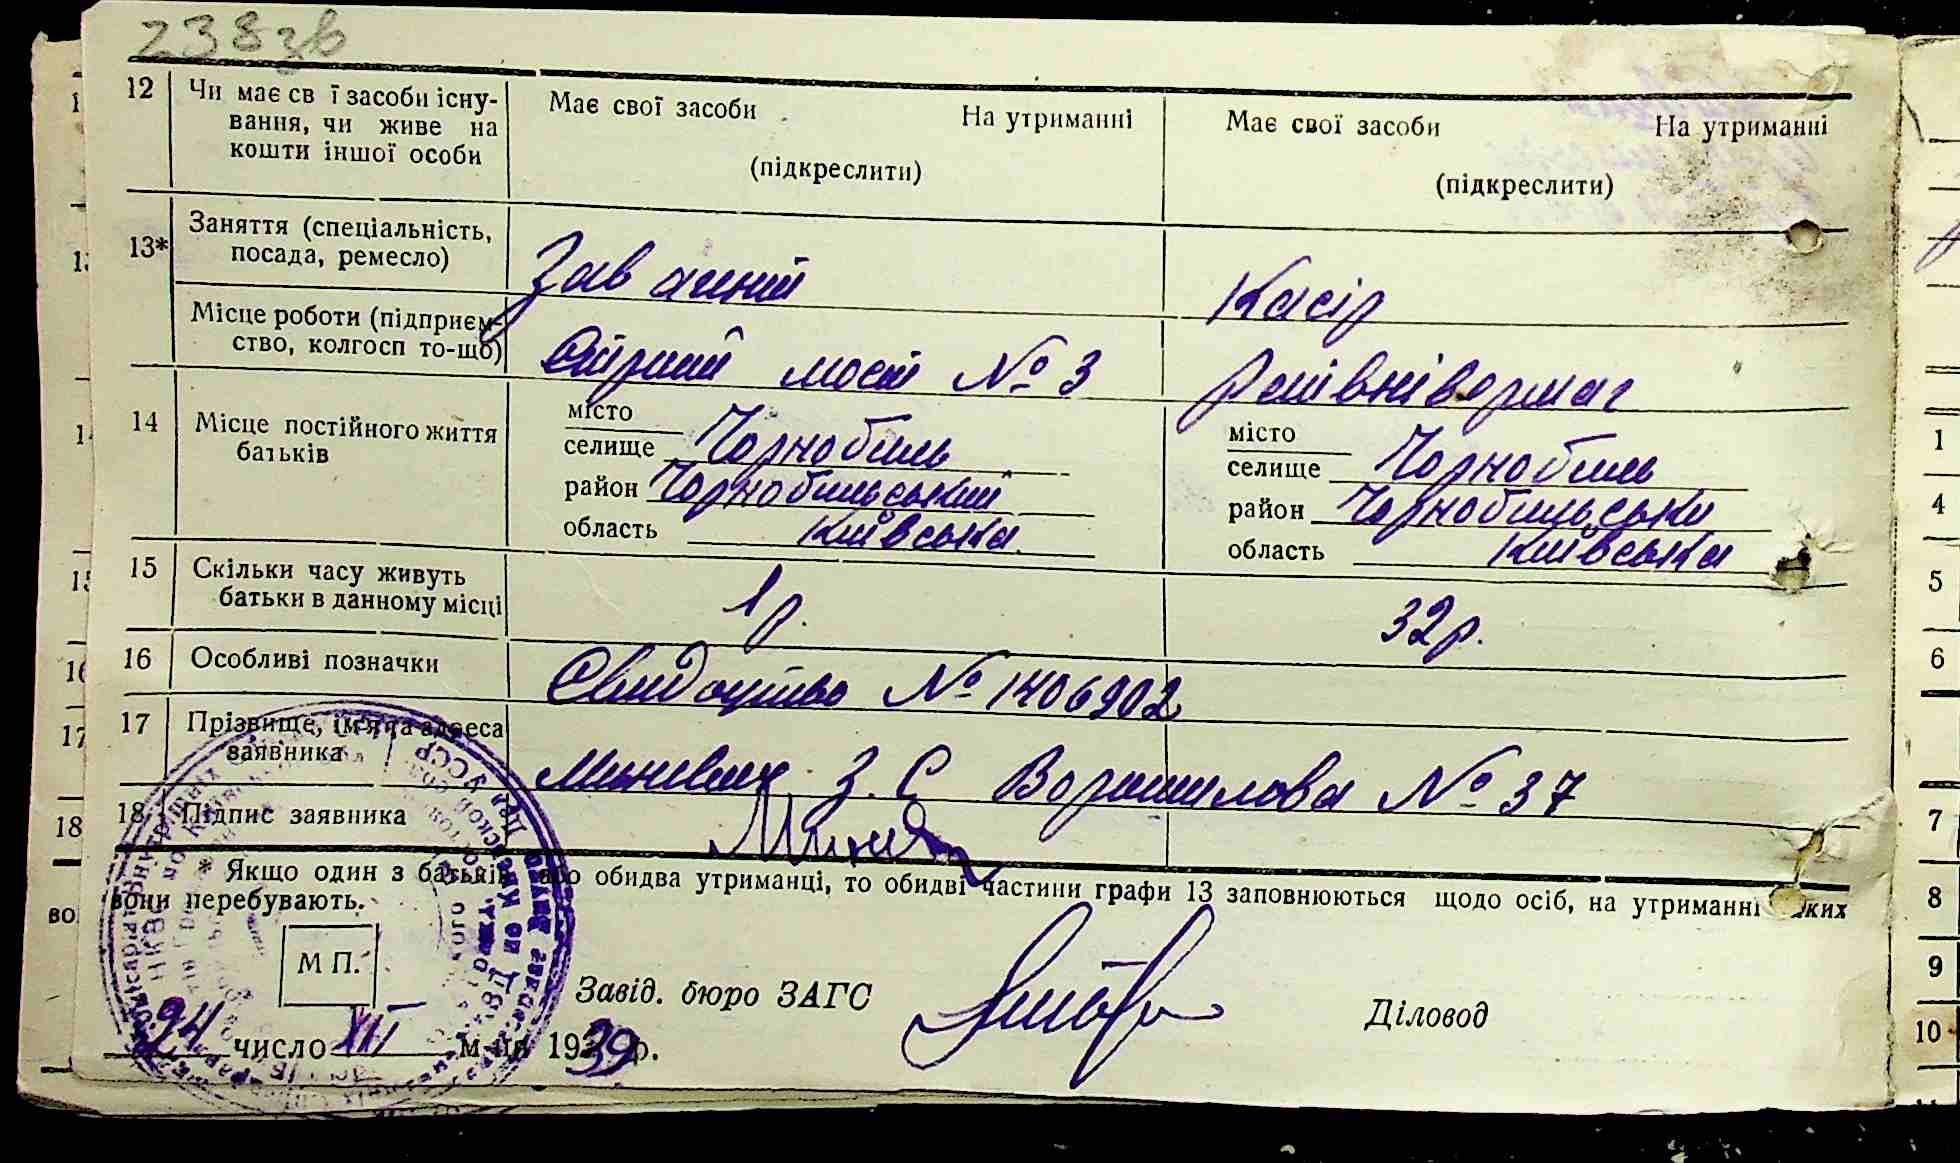 238зв
12 Чи має св ї засоби існу- Має свої засоби На утриманні Має свої засоби На утриманні
вання, чи живе на
кошти іншої особи (підкреслити) (підкреслити)
13* Заняття (спеціальність,
посада, ремесло) Зав Касір
Місце роботи (підприєм-
ство, колгосп то-що) мост № 3 Райвнівормаг
14 Місце постійного життя
батьків
місто місто
селище Чорнобиль селище Чорнобиль
район Чорнобильський район Чорнобильськи
область Київська область Київська
15 Скільки часу живуть
батьки в данному місці 1 р. 32 р.
16 Особливі позначки Свидоцтво № 1406902
17 Прізвище, ім'я та адреса
заявника З. С Ворошилова № 37
18 Підпис заявника
* Якщо один з батьків або обидва утриманці, то обидві частини графи 13 заповнюються щодо осіб, на утриманні яких
вони перебувають.
М П.
Завід. бюро ЗАГС Діловод
24 число XII м-ця 1939 р.